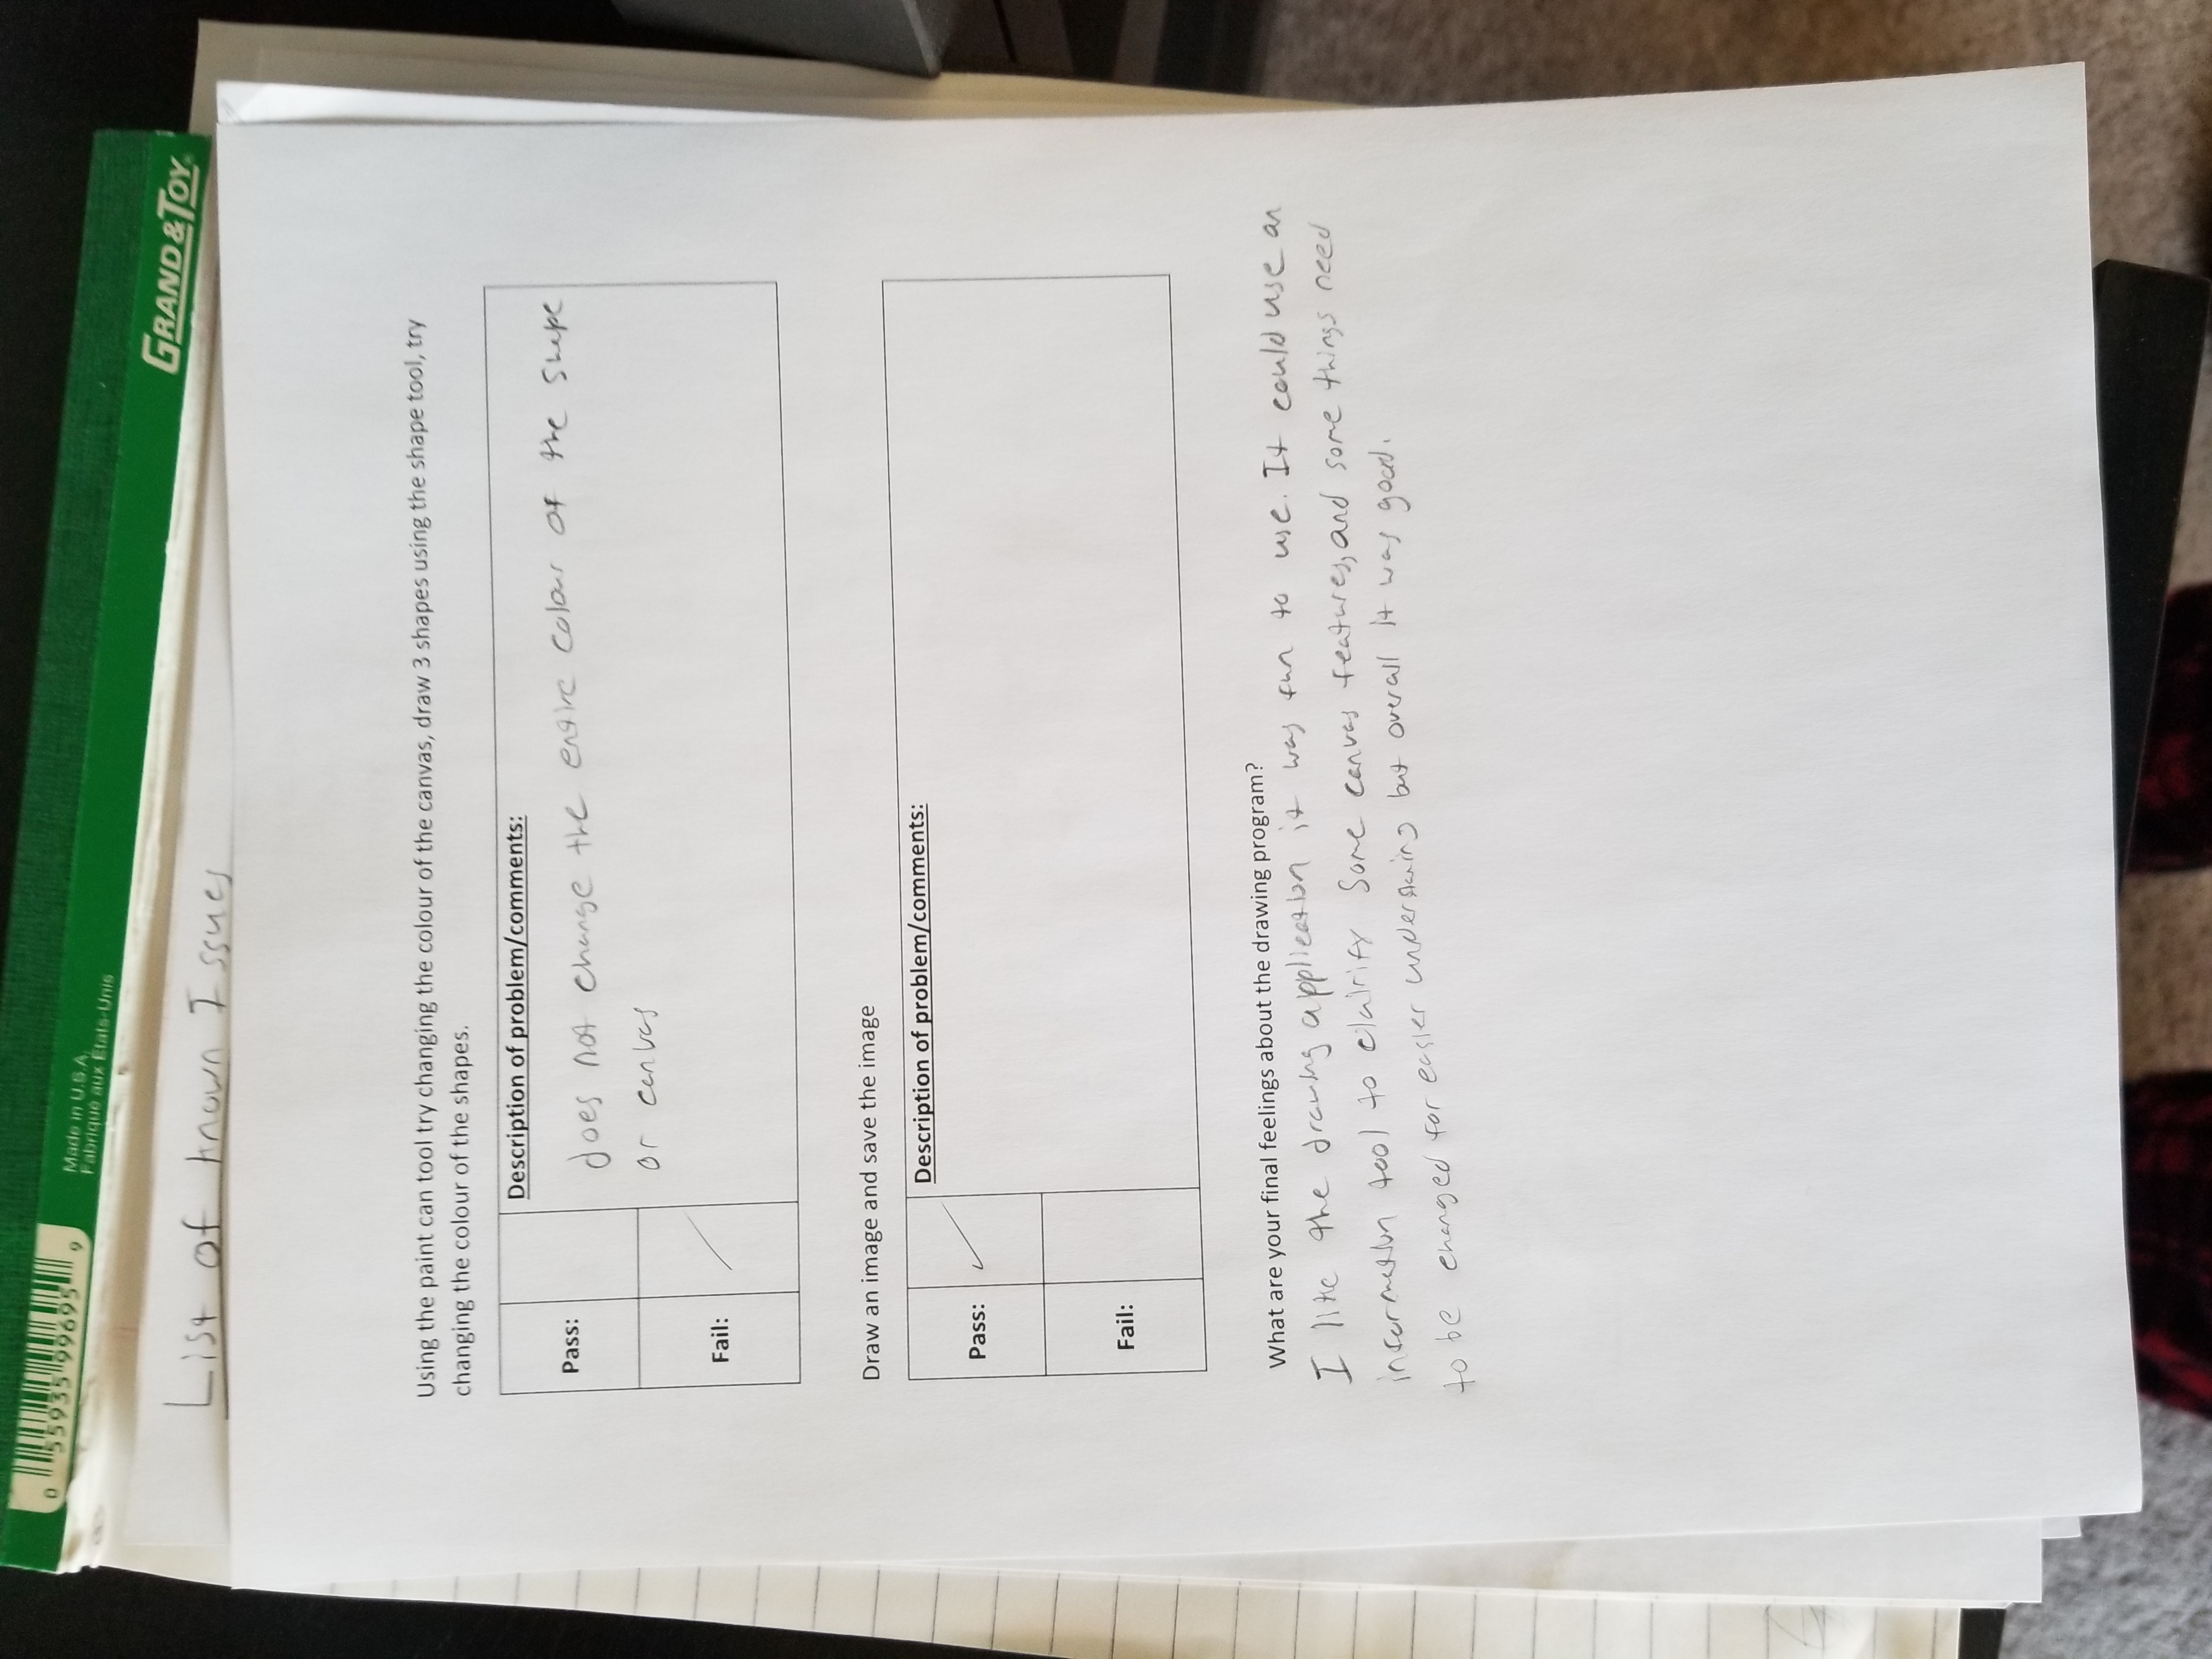 0 55935 99695 9
Made in U.S.A.
Fabrique aux États-Unis
GRAND&TOY
List of known Issues
Using the paint can tool try changing the colour of the canvas, draw 3 shapes using the shape tool, try
changing the colour of the shapes.
Description of problem/comments:
Pass:
does not change the entire colour of the shape
or canvas
Fail:
Draw an image and save the image
Description of problem/comments:
Pass:
Fail:
What are your final feelings about the drawing program?
I like the drawing application it was fun to use. It could use an
information tool to clairify some canvas features, and some things need
to be changed for easier understaing but overall it was good.